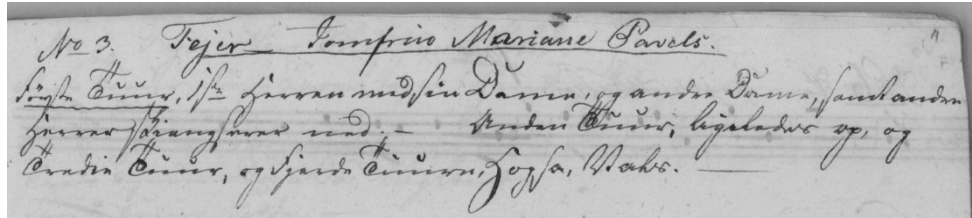 No 3. Fejer Jomfrue Mariane Pavels.
Förste Tuur, 1ste Herren med sin Dame, og andre Dame, samt andre
Herrer ned. – Anden Tuur, ligeledes op, og
Tredie Tuur, og Fjerde Tuuren, Hopsa, Vals. —